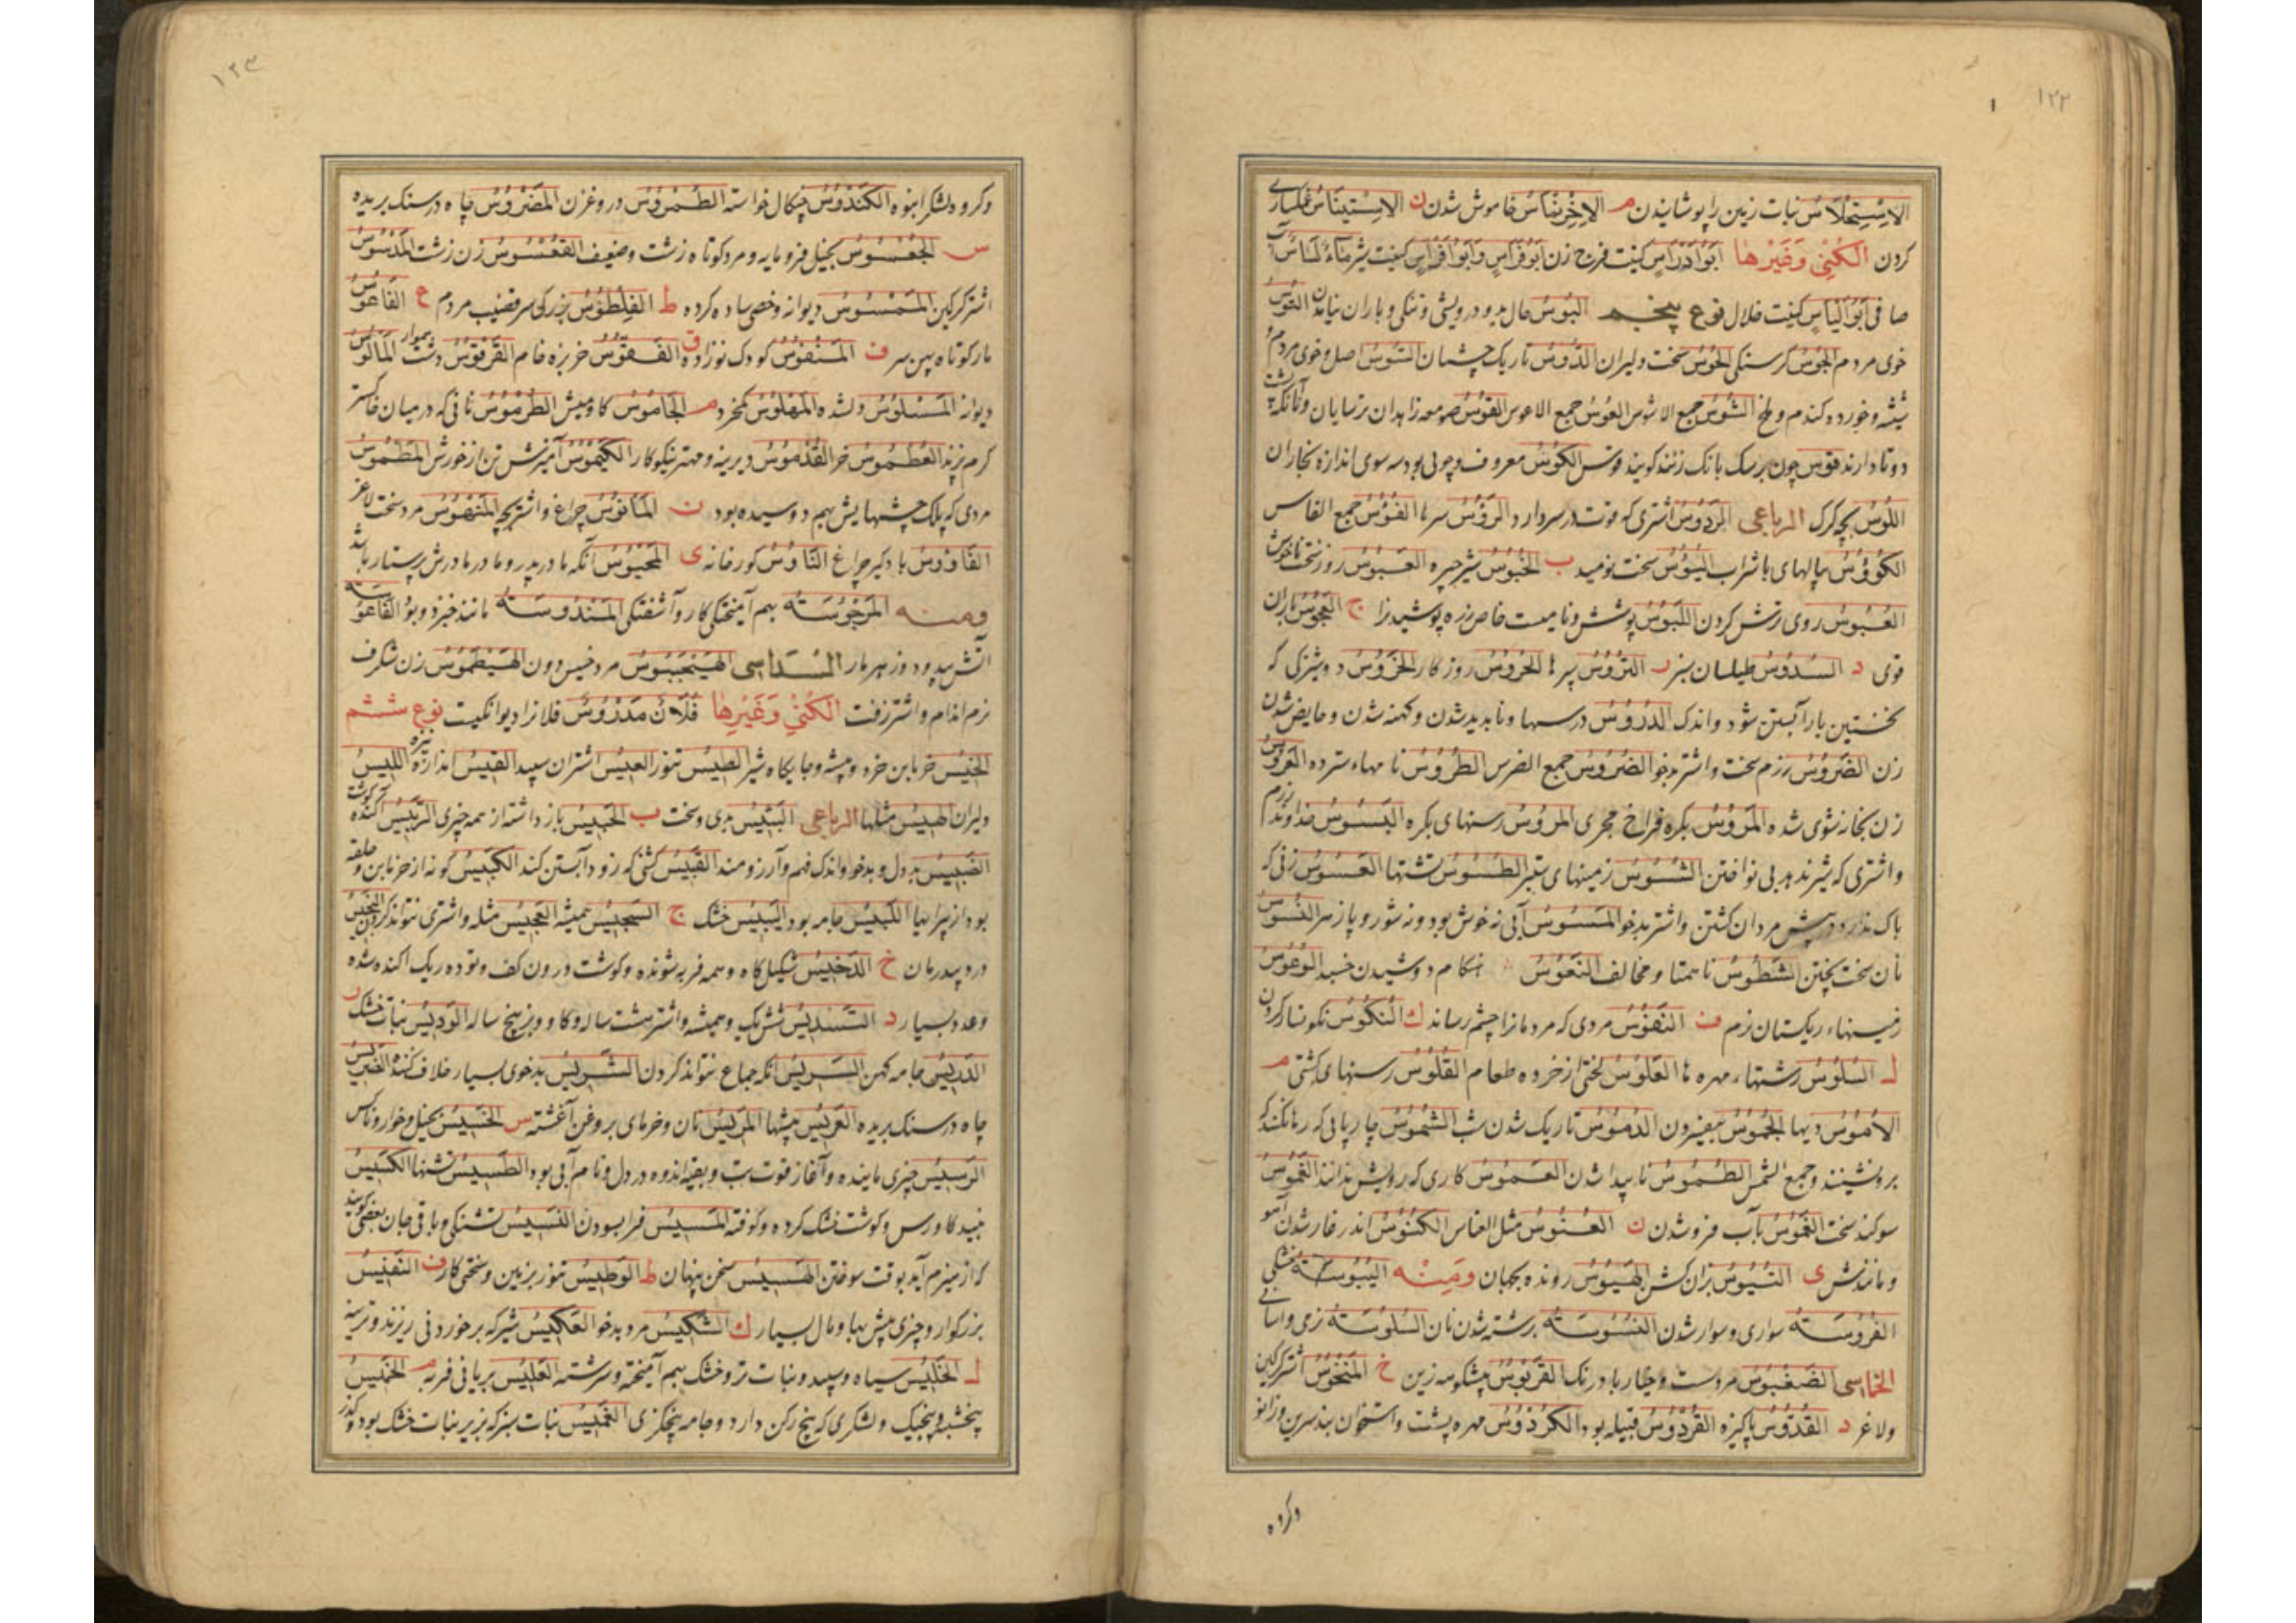 ١٢٢
الاِسْتِحْلَاسُ نبات زمین را پوشانیدن م الاِخْرِنْمَاسُ خاموش شدن ن الاِسْتِینَاسُ
کردن الکُنٰی وَغَیْرِهَا اَبُو اَدْرَاسٍ کنیت فرج زن اَبُو فِرَاسٍ وَاَبُو اَفْرَاسٍ کنیت شیر مَاءٌ
صافی اَبُو اَلْیَاسٍ کنیت خلال نوع پنجم البُوسُ حال بد و درویشی و تنکی و باران التُوسُ
خوی مردم الجُوسُ کرسنکی الحُوسُ سخت دلیران الدُّوسُ تاریک چشمان السُّوسُ اصل و خوی مردم و
شپشه و خورده کندم و ملخ الشُّوسُ جمع الاشوس العُوسُ جمع الاعوس القُوسُ صومعه زاهدان ترسایان و آنانکه پشت
دوتا دارند قوس چون بر سک بانک زنند کویند قوس الکُوسُ معروف و چوبی بود سه سوی اندازه نجاران
اللُّوسُ بچه کرک الرباعی الرَدُوسُ اشتری که قوت در سر دارد الرُؤُسُ سرها الفُؤُسُ جمع الفاس
الکُؤُوسُ پیالهای با شراب الیَؤُسُ سخت نومید ب الخَبُوسُ شیر چیره العَبُوسُ روز سخت ناخوش
العُبُوسُ روی ترش کردن اللَبُوسُ پوشش و نامیست خاص زره پوشیدنرا ج العَجُوسُ باران
قوی د السَّدُوسُ طیلسان سبز ر التُرُوسُ سپرها الحُرُوسُ روزکار الخَرُوسُ دوشیزکی که
نخستین بار آبستن شود و اندک الدُرُوسُ درسها و ناپدید شدن و کهنه شدن و حایض شدن
زن الضَرُوسُ رزم سخت و اشتر بدخو الضُرُوسُ جمع الضرس الطُرُوسُ نامهاء سترده العَرُوسُ
زن بخانه شوی شده المَرُوسُ بکره فراخ مجری المُرُوسُ رسنهای بکره البَسُوسُ خداوند رزم
و اشتری که شیر ندهد بی نواختن الشُسُوسُ زمینهای ستبر الطُسُوسُ تشتها العَسُوسُ زنی که
باک ندارد در پیش مردان کشتن و اشتر بدخو المَسُوسُ آبی نه خوش بود و نه شور و پازهر النُسُوسُ
نان سخت پختن الشَطُوسُ ناهمتا و مخالف النَعُوسُ هنکام دوشیدن خسبد الوُعُوسُ
زمینهاء ریکستان نرم ف النَفُوسُ مردی که مردمانرا چشم رساند ک النُکُوسُ نکونسار کردن
ل السُلُوسُ رشتهاء مهره ها العَلُوسُ لختی از خرده طعام القُلُوسُ رسنهای کشتی م
الاُمُوسُ دیها الجُمُوسُ بیفسردن الدُمُوسُ تاریک شدن شب الشَمُوسُ چارپایی که رها نکند که
برونشینند و جمع الشمس الطُمُوسُ ناپیدا شدن العَمُوسُ کاری که رویش ندانند الغَمُوسُ
سوکند سخت الغُمُوسُ بآب فرو شدن ن العُنُوسُ مثل العناس الکُنُوسُ اندر غار شدن آهو
و مانندش ی التُیُوسُ بزان کشن الهَیُوسُ رونده بجهان ومنه الیُبُوسَةُ خشکی
الفُرُوسَةُ سواری و سوار شدن النُسُوسَةُ برشته شدن نان السُلُوسَةُ نرمی و آسانی
الخماسی الضُغْبُوسُ مرد سست و خیار بادرنک القَرَبُوسُ پیشکوهه زین خ المَنْخُوسُ اشتر کرکین
و لاغر د القُدُّوسُ پاکیزه القُرْدُوسُ قبیله بود الکُرْدُوسُ مهره پشت و استخوان بند سرین و زانو
و کروه
١٢٣
و کروه لشکر انبوه الکُنْدُوسُ چنکال خواسته الطُمْرُوسُ دروغزن المَضْرُوسُ چاه در سنک بریده
س الجُعْسُوسُ بخیل فرومایه و مرد کوتاه زشت و ضعیف القُعْسُوسُ زن زشت المَدْسُوسُ
اشتر کرکین المَمْسُوسُ دیوانه و خصی ساده کرده ط الفِلْطَوْسُ بزرکی سر قضیب مردم ع الفَاعُوسُ
مار کوتاه پهن سر ف المَنْفُوسُ کودک نوزاده ق الفَقُّوسُ خربزه خام القَرَقُوسُ دشت هموار المَالُوسُ
دیوانه المَسْلُوسُ دلشده المَهْلُوسُ کمخرد م الجَامُوسُ کاومیش الطُرْمُوسُ نانی که در میان خاکستر
کرم پزند العُطْمُوسُ خر القُدْمُوسُ دیرینه و مهتر نیکوکار الکَیْمُوسُ آمیزش تن از خورش المَطْمُوسُ
مردی که پلک چشمهایش بهم دوسیده بود ن المَانُوسُ چراغ و اشتربچه المَنْهُوسُ مرد سخت لاغر
الفَاوُوسُ بادکیر چراغ النَّاوُسُ کورخانه ی المَحْیُوسُ آنکه مادر پدر و مادر مادرش پرستار باشد
ومنه المَرْجُوسَةُ بهم آمیختکی کار و آشفتکی المَنْدُوسَةُ مانند خبزدو بو الفَاعُوسَةُ
آتش بیدود و زهر مار السداسی الهَیْنَجَبُوسُ مرد خسیس دون الهَیْطَمُوسُ زن شکرف
نرم اندام و اشتر زفت الکُنٰی وَغَیْرِهَا فُلَانٌ مَدْرُوسٌ فلانرا دیوانکیست نوع ششم
الخِیْسُ خرمابن خرد و بیشه و جایکاه شیر الطِیْسُ تنور العِیْسُ اشتران سپید القِیْسُ اندازه نیزه اللِیْسُ
دلیران الهِیْسُ مثلها الرباعی البَئِیْسُ بدی و سخت ب الحَبِیْسُ باز داشته از همه چیزی الرَبِیْسُ آکنده کوشت
الضَبِیْسُ بد دل و بدخو و اندک فهم و آرزومند القَبِیْسُ کشنی که زود آبستن کند الکَبِیْسُ کونه از خرمابن و حلقه
بود از پیرایها اللَبِیْسُ جامه بود الیَبِیْسُ خشک ج السَجِیْسُ همیشه العَجِیْسُ مثله و اشتری نتواند کردن النَجِیْسُ
درد بیدرمان خ الدَخِیْسُ شکیل کاه و همه فربه شونده و کوشت درون کف و توده ریک اکنده شده
و عدد بسیار د السَدِیْسُ شش یک و همیشه و اشتر هشت ساله و کاو و بز پنج ساله الوَدِیْسُ نبات خشک ر
الدَرِیْسُ جامه کهن السَرِیْسُ آنکه جماع نتواند کردن الشَرِیْسُ بدخوی بسیار خلاف کننده
چاه در سنک بریده العَرِیْسُ بیشها المَرِیْسُ نان و خرمای بروغن آغشته س الخَسِیْسُ بخیل و خوار و ناکس
الرَسِیْسُ چیزی پاینده و آغاز قوت تب و بقیه اندوه در دل و نام آبی بود الطَسِیْسُ تشتها الکَسِیْسُ
نبید کاورس و کوشت خشک کرده و کوفته المَسِیْسُ فرا بسودن النَسِیْسُ تشنکی و باقی جان بعضی کویند
که از هیزم آید بوقت سوختن الهَسِیْسُ سخن پنهان ط الوَطِیْسُ تنور بزمین و سختی کار ف النَفِیْسُ
بزرکوار و چیزی بیش بها و مال بسیار ک الشَکِیْسُ مرد بدخو العَکِیْسُ شیر که بر خوردنی ریزند و ترینه
ل الخَلِیْسُ سیاه و سپید و نبات تر و خشک بهم آمیخته و سرشته العَلِیْسُ بریانی فربه م الخَمِیْسُ
پنجشنبه و پنجیک و لشکری که پنج رکن دارد و جامه پنجکزی الغَمِیْسُ نبات سبز که بزیر نبات خشک بود